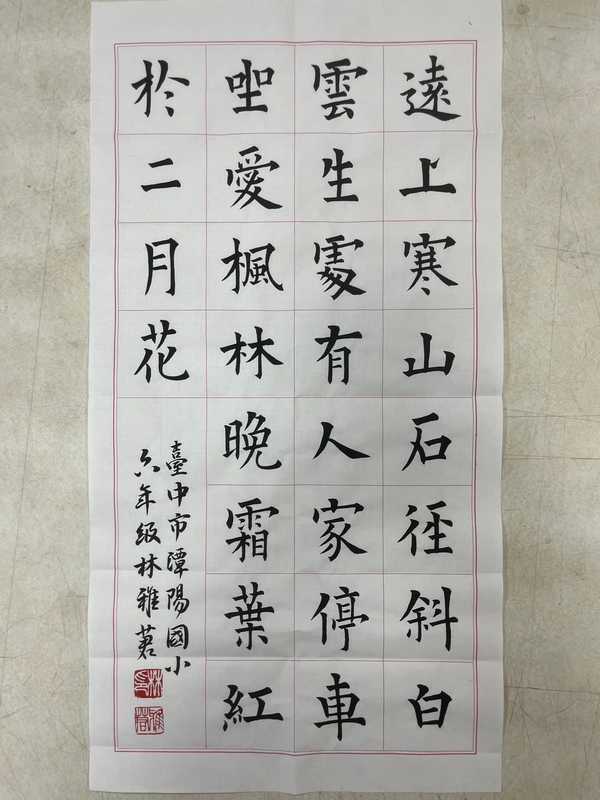 遠上寒山石徑斜白
雲生處有人家停車
坐愛楓林晚霜葉紅
於二月花
臺中市潭陽國小
六年級林雅茗